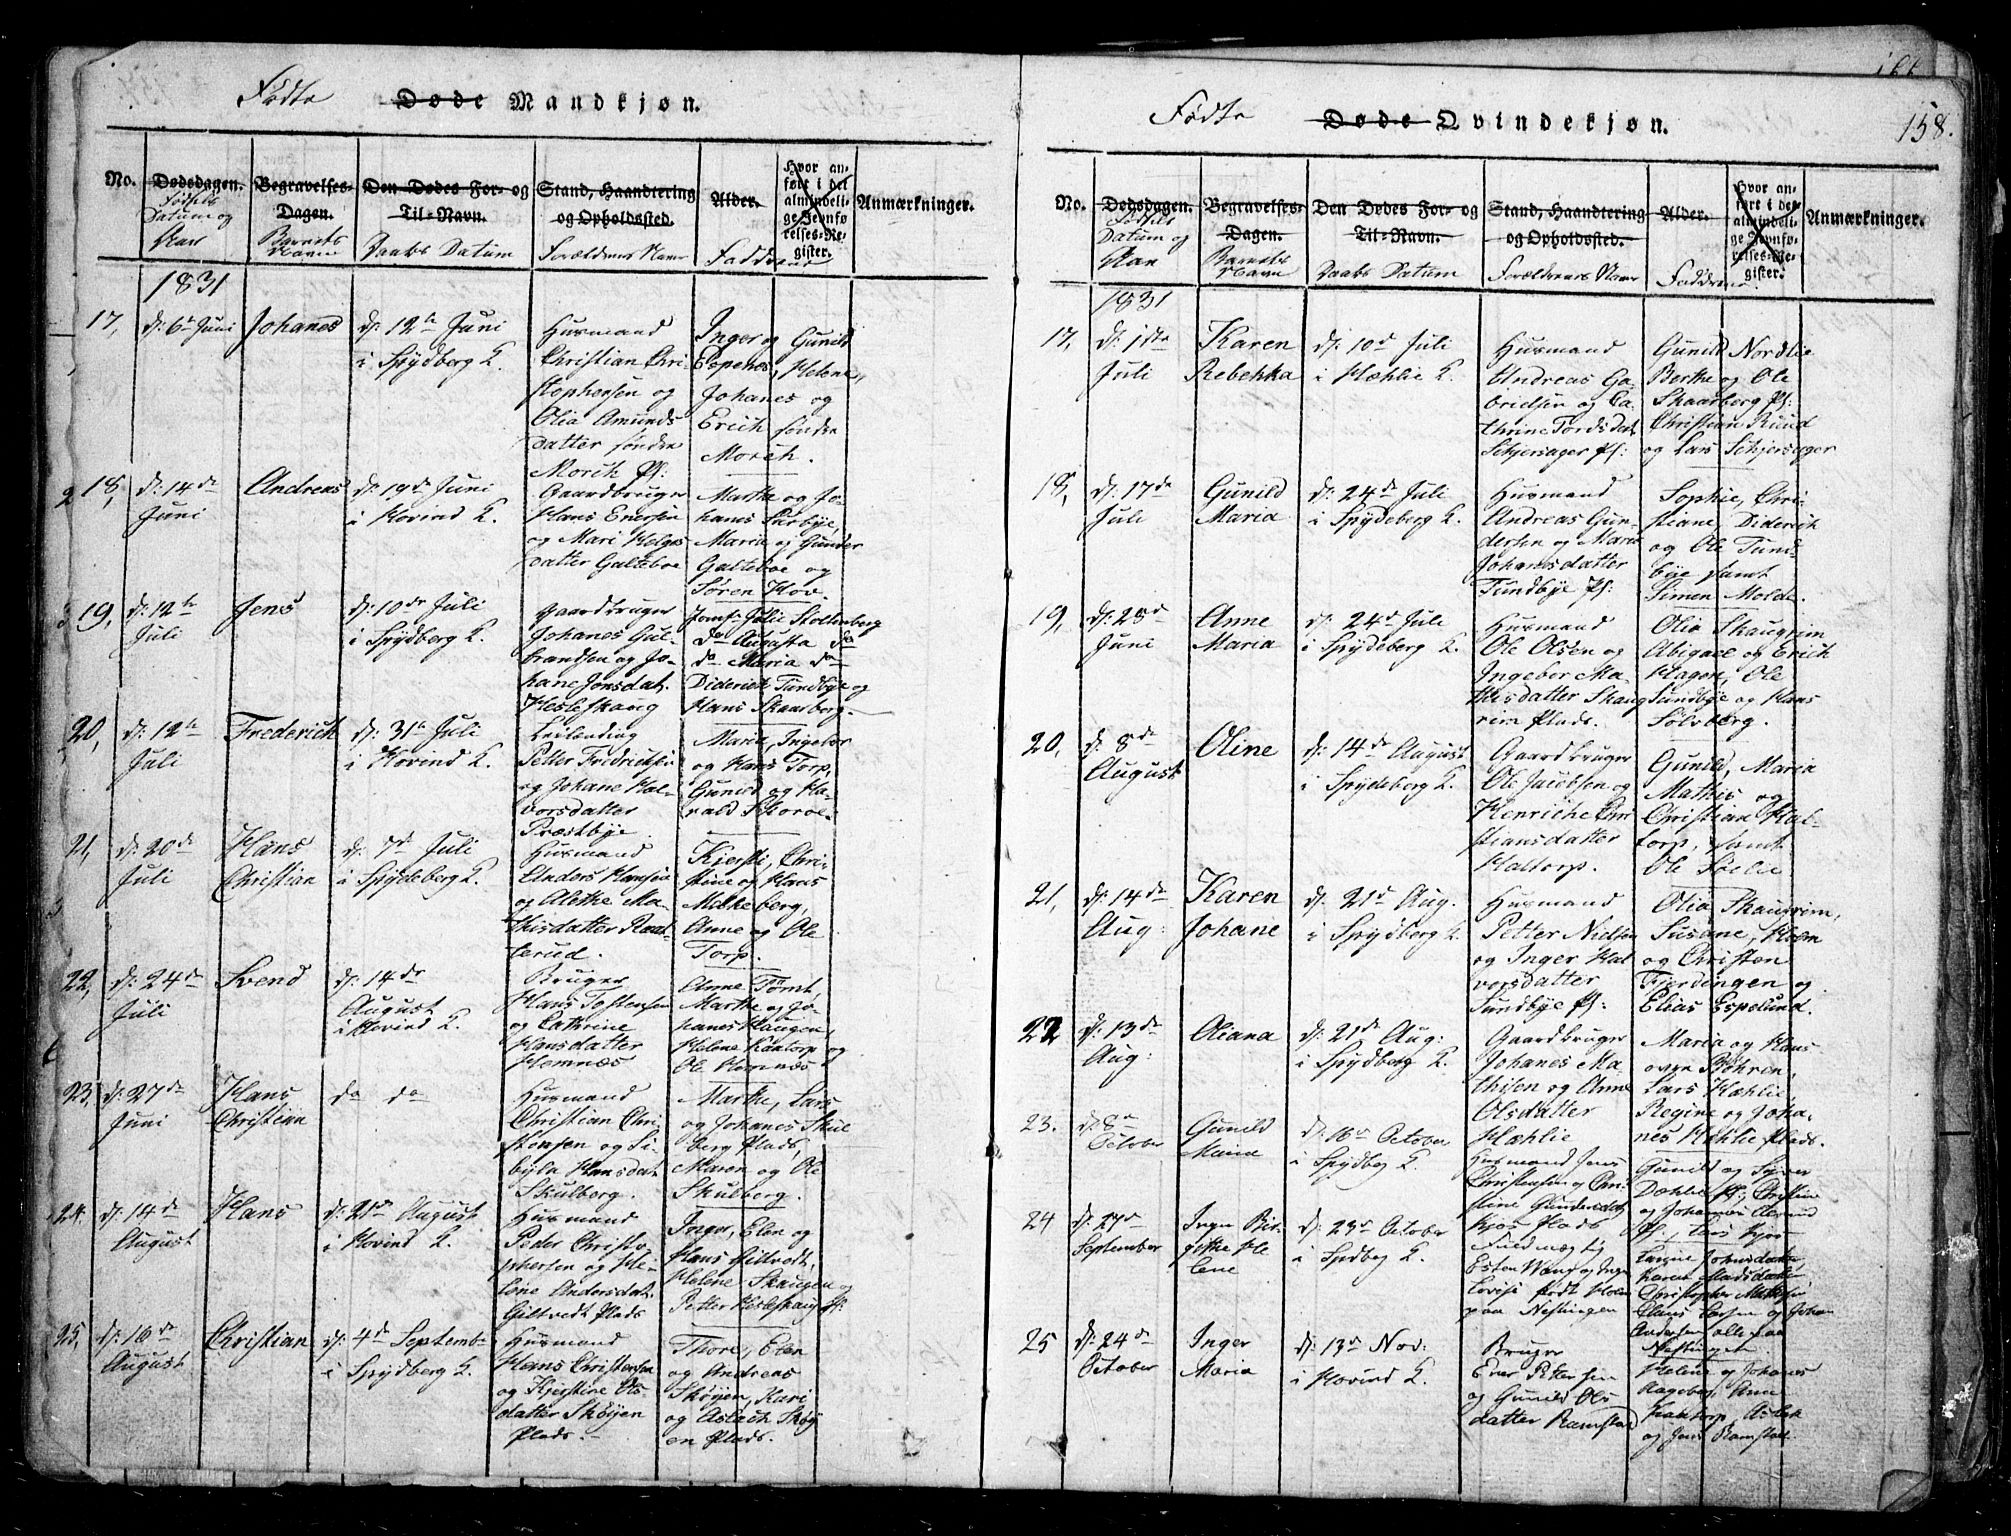 Fødte Døde Mandkjøn.
No.
Dødsdagen.
Fødsels
Datum og
Aar
Begravelses-
Dagen.
Barnets
Navn
Den Dødes For- og
Til-Navn.
Daabs Datum
Stand, Haandtering
og Opholdssted.
Forældrenes Navn
Alder.
Faddrene
Hvor an-
ført i det
almindeli-
ge Jevnfø
relses-Re-
gister.
Anmærkninger.
1831
17,
d: 6te Juni
Johanes
d: 12te Juni
i Spydberg K.
Husmand
Christian Chri-
stophersen og
Olia Amunds
datter søndre
Morch Pl:
Inger og Gunild
Espenes, Helene,
Johanes og
Erich søndre
Morch.
18,
d: 14de
Juni
Andreas
d: 19de Juni
i Hovind K.
Gaardbruger
Hans Enersen
og Mari Helges
datter Galteboe
Marthe og Jo-
hanes Lurbye,
Maria og Gunder
Galteboe og
Søren Hov.
19,
d: 12te
Juli
Jens
d: 10de Juli
i Spydberg K.
Gaardbruger
Johanes Gul-
brandsen og Jo-
hane Jonsdat.
Hesleskaug
Jomfr. Julie Stoltenberg
do Augusta do
do Maria do
Diderich Tundbye og
Hans Skaarberg.
20,
d: 12te
Juli
Frederich
d: 31te Juli
i Hovind K.
Leilending
Petter Fredrichsen
og Johane Hal-
vorsdatter
Præstbye
Maria, Ingebor
og Hans Torp,
Gunild og Ha-
rald Skoroe.
21,
d: 20de
Juli
Hans
Christian
d: 7de Juli
i Spydeberg K.
Husmand
Anders Hansen
og Alethe Ma-
thisdatter Raad-
lerud.
Kjersti, Chri-
stine og Hans
Melkeberg,
Anne og Ole
Torp.
22,
d: 24de
Juli
Svend
d: 14de
August
i Hovind K.
Bruger
Hans Tostensen
og Cathrine
Hansdatter
Hemnæs
Anne Tømt,
Marthe og Jo-
hanes Haugen,
Helene Kantorp og
Ole Hemnæs
23,
d: 27de
Juni
Hans
Christian
do do
Husmand
Christian Chri-
stensen og Si-
byla Hansdat.
Skulberg.
Marthe, Lars
og Johanes Skul
berg Plads,
Maren og Ole
Skulberg.
24.
d: 14de
August
Hans
d: 21de August
i Hovind K.
Husmand
Peder Christo-
phersen og He-
lene Andersdat.
Giltvedt Plads
Inger, Elen og
Hans Giltvedt,
Helene Skaugen og
Petter Hesleskaug Pl:
25,
d: 16de
August
Christian
d: 4de Septemb-
i Spydberg K.
Husmand
Hans Christensen
og Kjerstine Ols
datter Skøyen
Plads.
Thore, Elen
og Andreas
Skøyen, Kari
og Aslach Skøy
en Plads.
Fødte Døde Qvindekjøn.
158.
No.
Dødsdagen.
Fødsels
Datum og
Aar
Begravelses-
Dagen.
Barnets
Navn
Den Dødes For- og
Til-Navn.
Daabs Datum
Stand, Haandtering
og Opholdssted.
Forældrenes Navn
Alder.
Faddrene.
Hvor an-
ført i det
almindeli-
ge Jevnfø-
relses-Re-
gister.
Anmærkninger.
1831
17,
d: 1ste
Juli
Karen
Rebekka
d: 10de Juli
i Hæhlie K.
Husmand
Andreas Ga-
brielsen og Ca-
thrine Tordsdat.
Schjersager Pl:
Gunild Nordlie
Berthe og Ole
Skaarberg Pl:
Christian Ruud
og Lars Schjersager
18,
d: 17de
Juli
Gunild
Maria
d: 24de Juli
i Spydeberg K.
Husmand
Andreas Gun-
dersen og Maria
Johanesdatter
Tundbye Pl:
Sophie, Chri-
stiane, Diderich
og Ole Tund-
bye samt
Simen Molde.
19,
d: 28de
Juni
Anne
Maria
d: 24de Juli
i Spydeberg K.
Husmand
Ole Olsen og
Ingebor Ma-
thisdatter Skaug
rim Plads.
Olia Skaugrim
Abigael og Erich
Hagen, Ole
Sundbye og Hans
Sølvberg.
20,
d: 8de
August
Oline
d: 14de August
i Spydeberg K.
Gaardbruger
Ole Jacobsen og
Henriche Chri
stiansdatter
Haltorp.
Gunild, Maria
Mathis og
Christian Hal-
torp, samt
Ole Løvlie
21,
d: 14de
Aug:
Karen
Johane
d: 21de Aug.
i Spydberg K.
Husmand
Petter Nielsen
og Inger Hal
vorsdatter
Sundbye Pl:
Olia Skaugrim,
Susane, Holm
og Christen
Fjerdingen og
Elias Espelund.
22
d: 13de
Aug:
Oliana
d: 21de Aug:
i Spydberg K.
Gaardbruger
Johanes Ma
thisen og Anne
Olsdatter
Hæhlie
Maria og Hans
øvre Bøhren,
Lars Hæhlie,
Regine og Joha-
nes Hæhlie Plads.
23.
d: 8de
October
Gunild
Maria
d: 16de October
i Spydbeg K.
Husmand Jens
Christensen og Chri-
stine Gundersdat.
Kjos Plads
Gunild og Syver
Dæhlie Pl:, Christine
og Johannes
Pl:, Lars Kjos
24
d: 27de
September
Inga Bir-
githe He
lene
d: 23de October
i Spdbeg K.
Fuldmægtig
Esten Wang og Inga
Lovise født Holm
paa Nestingen
Johnsdatter
Karen Madsdatter,
Christopher
Claus Larsen og Johan
Andersen alle paa
25
d: 24de
October
Inger
Maria
d: 13de Nov:
i Hovind K.
Bruger
Ener Petersen
og Gunild Ols
datter Ramstad
Helene og Johanes
Hageberg, Anne
Kantorp, Aslak
og Jens Ramstad.